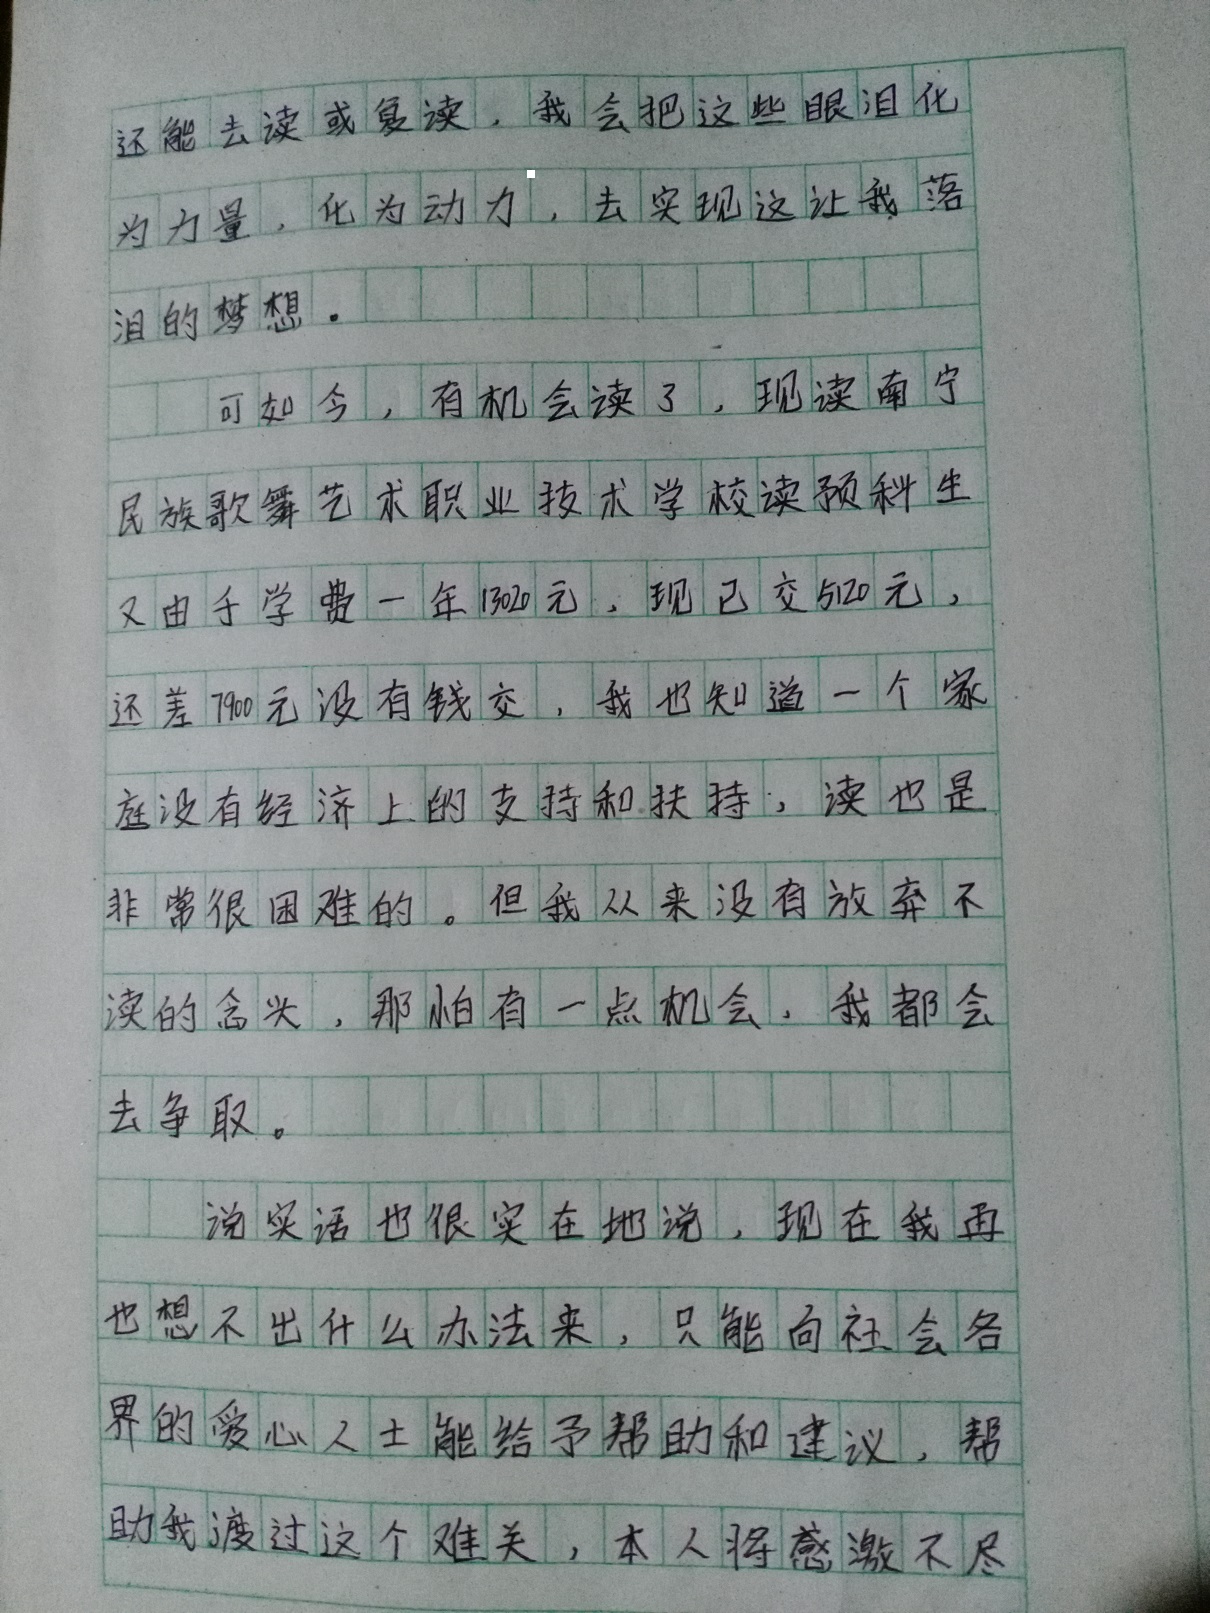 还能去读或复读，我会把这些眼泪化
为力量，化为动力，去实现这让我落
泪的梦想。
可如今，有机会读了，现读南宁
民族歌舞艺术职业技术学校读预科生
又由于学费一年13020元，现已交5120元，
还差7900元没有钱交，我也知道一个家
庭没有经济上的支持和扶持，读也是
非常很困难的。但我从来没有放弃不
读的念头，那怕有一点机会，我都会
去争取。
说实话也很实在地说，现在我再
也想不出什么办法来，只能向社会各
界的爱心人士能给予帮助和建议，帮
助我渡过这个难关，本人将感激不尽